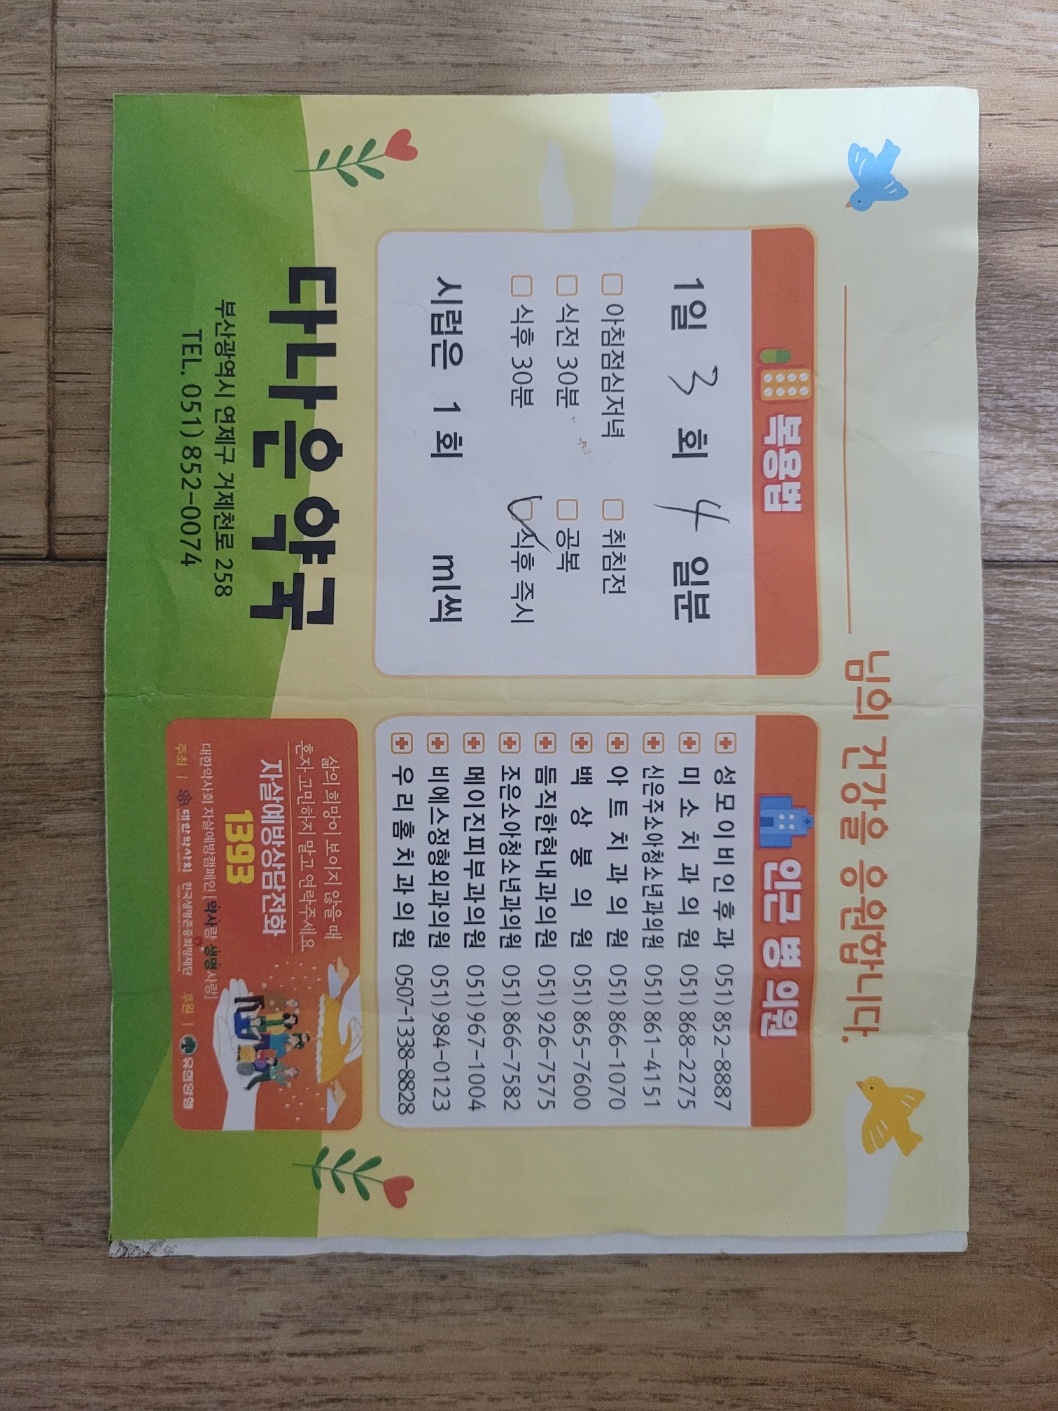 님의 건강을 응원합니다.
복용법
1일 3 회 4 일분
아침점심저녁 취침전
식전 30분 공복
식후 30분 식후 즉시
시럽은 1 회 ml씩
다나은약국
부산광역시 연제구 거제천로 258
TEL. 051) 852-0074
인근 병 의원
성모이비인후과 051) 852-8887
미소치과의원 051) 868-2275
신은주소아청소년과의원 051) 861-4151
아트치과의원 051) 866-1070
백상붕의원 051) 865-7600
듬직한현내과의원 051) 926-7575
조은소아청소년과의원 051) 866-7582
메이진피부과의원 051) 967-1004
비에스정형외과의원 051) 984-0123
우리홈치과의원 0507-1338-8828
삶의 희망이 보이지 않을 때
혼자 고민하지 말고 연락주세요
자살예방상담전화
1393
대한약사회 자살예방캠페인 [약사랑 생명사랑]
주최 | 대한약사회 한국생명존중희망재단 후원 | 유한양행